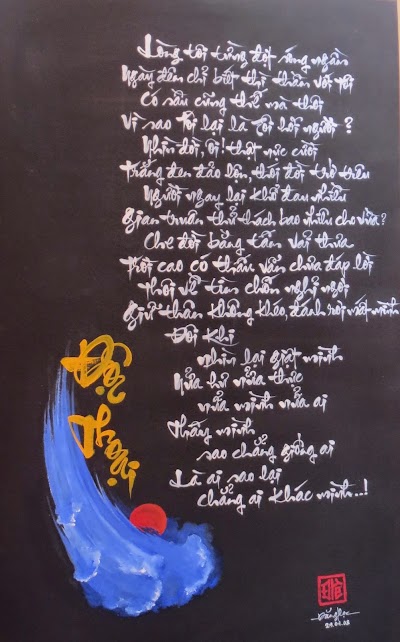 Lòng tôi từng đợt sóng ngàn
Ngày đêm chỉ biết thì thầm với tôi
Có sầu cũng thế mà thôi
Vì sao tôi lại là tôi hỡi người?
Nhìn đời, ôi thật nực cười
Trắng đen đảo lộn, thói đời trớ trêu
Người ngay lại khổ đau nhiều
Gian truân thử thách bao nhiêu cho vừa?
Chê đời bằng tấm vải thưa
Trời cao có thấu vẫn chưa đáp lời
Thôi về tìm chốn nghỉ ngơi
Giữ thân không khéo, đánh rơi mất mình
Đôi khi
nhìn lại giật mình
Nửa hư nửa thực
nửa mình nửa ai
Thấy mình
sao chẳng giống ai
Là ai sao lại
chẳng ai khác mình..!
Đời Người